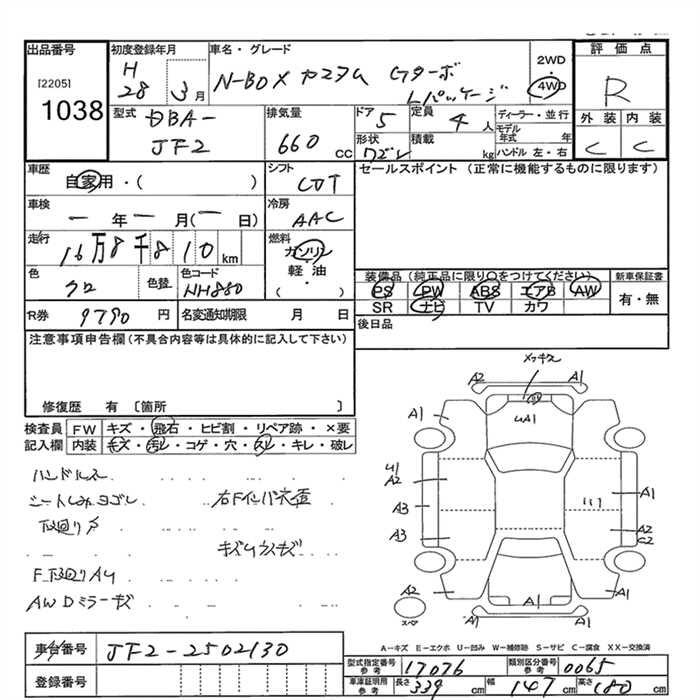 出品番号 初度登録年月 車名・グレード 評価点
[2205] 1038
H 28 3月
N-BOX カスタム Gターボ
Lパッケージ
2WD
4WD
R
型式 DBA-
JF2
排気量 660 cc
ドア 5 定員 4人 ディーラー・並行
モデル年式 年
形状 ワゴン 積載 kg ハンドル 左・右
外装 内装
C C
車歴 自家用・( )
シフト CVT
セールスポイント (正常に機能するものに限ります)
車検 ー年ー月(ー日)
冷房 AAC
走行 16万8千810km
燃料 ガソリン
軽油
( )
色 色替 色コード NH880
装備品 (純正品に限り○をつけてください) 新車保証書
PS PW ABS エアB AW 有・無
SR ナビ TV カワ
R券 9790円 名変通知期限 月 日
後日品
注意事項申告欄(不具合内容等は具体的に記入して下さい)
修復歴 有 〔箇所 〕
検査員 FW キズ・飛石・ヒビ割・リペア跡・×要
記入欄 内装 キズ・汚レ・コゲ・穴・スレ・キレ・破レ
ハンドルスレ
シートしみヨゴレ
下回りサ
F下回りAU
AWDミラーキズ
A2 A1
A1 UA1
U1
A2
A3
A3
A1
A2
C2
A2
スペア
A1
A1
A-キズ E-エクボ U-凹み W-補修跡 S-サビ C-腐食 XX-交換済
車台番号 JF2-2502130
登録番号
型式指定番号 参考 17076 類別区分番号 参考 0065
車庫証明用 参考 長さ 339cm 幅 147cm 高さ 180cm